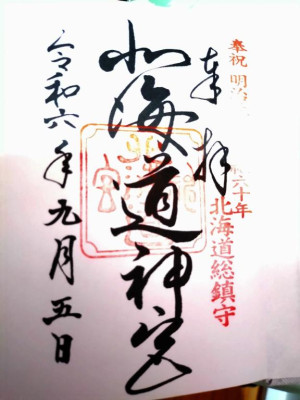 奉祝 明治
六十年
北海道総鎮守
奉拝
北海道神宮
令和六年九月五日